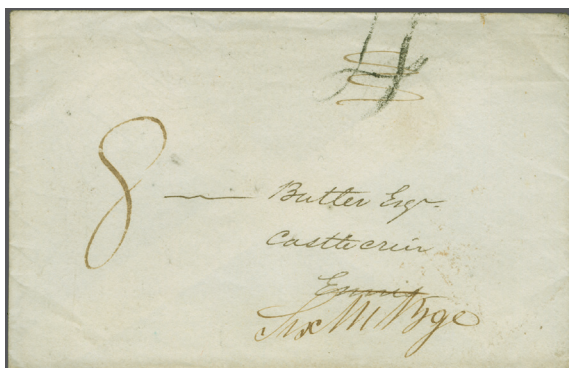 4
8 — Butler Esqr.
Castlecrin
Ennis
Six M Bge